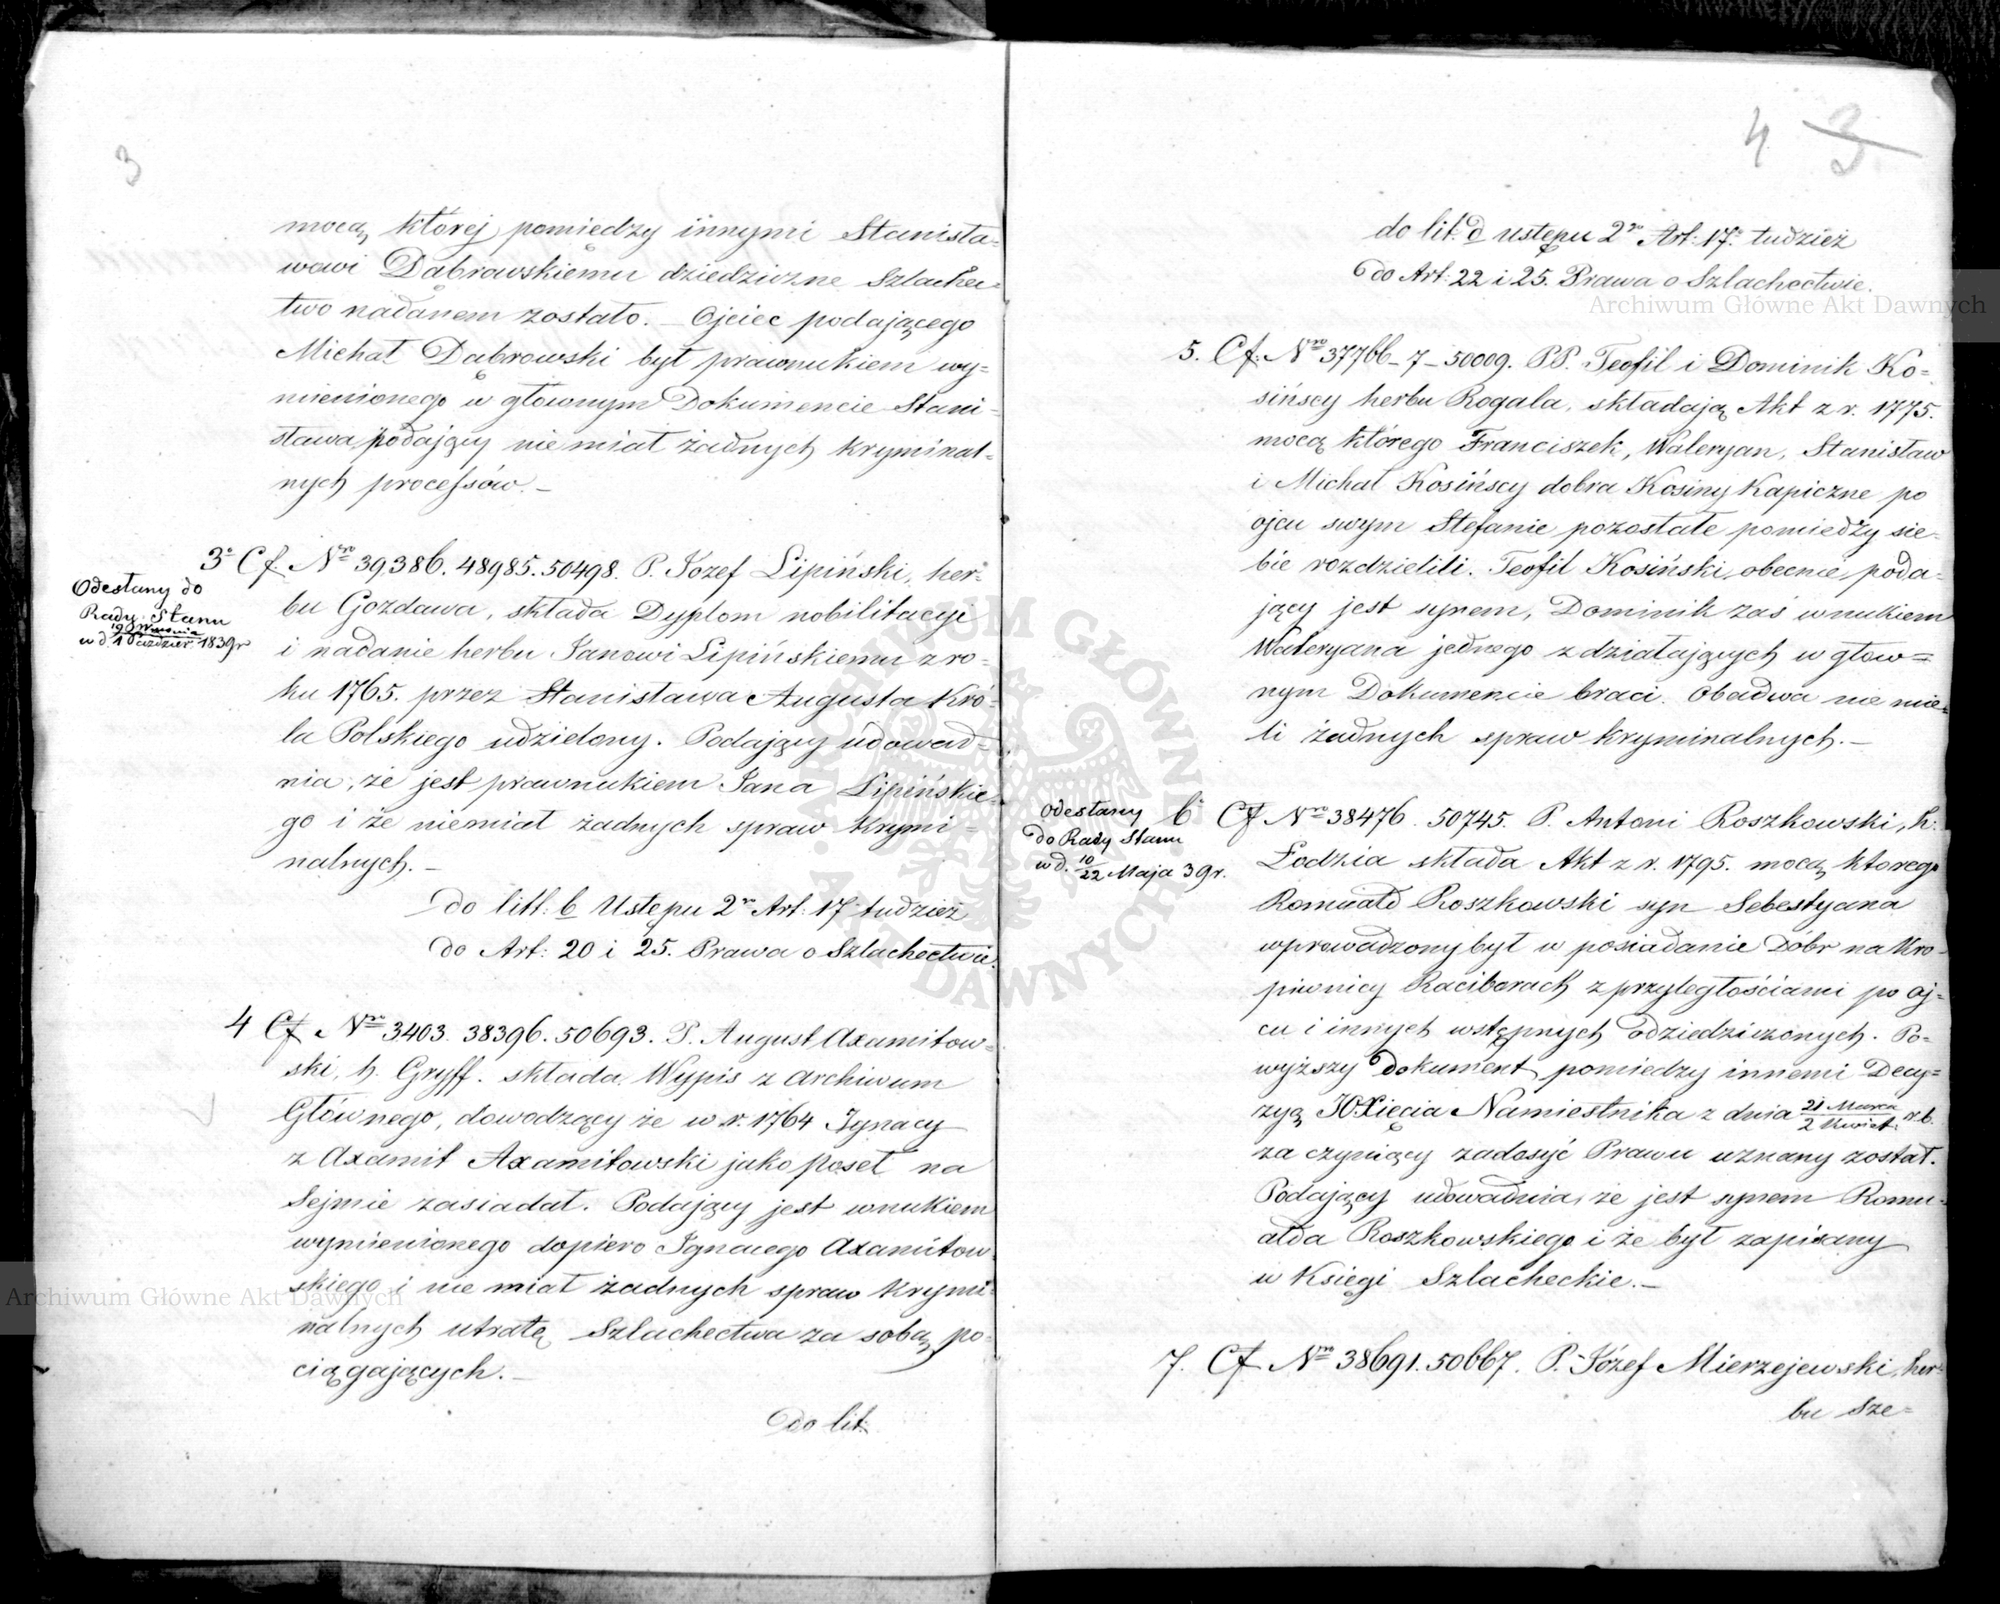 3
mocą której pomiędzy innymi Stanisła-
wowi Dąbrowskiemu dziedziczne Szlachec-
two nadanem zostało. – Ojciec podającego
Michał Dąbrowski był prawnukiem wy-
mienionego w głównym Dokumencie Stani-
sława podający nie miał żadnych kryminal-
nych processów. –
3° Cf Nro 39386. 48985. 50498. P. Józef Lipiński, her-
bu Gozdawa, składa Dyplom nobilitacyi
i nadanie herbu Janowi Lipińskiemu z ro-
ku 1765. przez Stanisława Augusta Kró-
la Polskiego udzielony. Podający udowad-
nia, że jest prawnukiem Jana Lipińskie-
go i że niemiał żadnych spraw krymi-
nalnych. –
Odesłany do
Rady Stanu
w d. 19 Września / 1 Paździer. 1839 r
do litt: b Ustępu 2go Art: 17° tudzież
do Art: 20 i 25. Prawa o Szlachectwie.
4 Cf Nro 3403. 38396. 50693. P. August Axamitow-
ski, h. Gryff. składa Wypis z Archiwum
Głównego, dowodzący że w r. 1764 Ignacy
z Axamit Axamitowski jako poseł na
Sejmie zasiadał. Podający jest wnukiem
wymienionego dopiero Ignacego Axamitow-
skiego i nie miał żadnych spraw krymi-
nalnych utratę Szlachectwa za sobą po-
ciągających. –
do lit:
4 3
do lit: d ustępu 2go Art: 17° tudzież
do Art: 22 i 25. Prawa o Szlachectwie.
5. Cf: Nro 37766–7–50009. PP. Teofil i Dominik Ko-
sińscy herbu Rogala, składają Akt z r. 1775.
mocą którego Franciszek, Waleryan, Stanisław
i Michał Kosińscy dobra Kosiny Kapiczne po
ojcu swym Stefanie pozostałe pomiedzy sie-
bie rozdzielili. Teofil Kosiński, obecnie, poda-
jący jest synem, Dominik zaś wnukiem
Waleryana jednego z działających w głów-
nym Dokumencie braci. Obadwa nie mie-
li żadnych spraw kryminalnych. –
6° Cf Nro 38476. 50745. P. Antoni Roszkowski, h.
Łodzia składa Akt z r. 1795. mocą ktorego
Romuald Roszkowski syn Sebestyana
wprowadzony był w posiadanie Dóbr na Kro-
piwnicy Raciborach z przyległościami po oj-
cu i innych wstępnych odziedziczonych. Po-
wyższy dokument pomiedzy innemi Decy-
zyą JOXięcia Namiestnika z dnia 21 Marca / 2 Kwiet: r. b.
za czyniący zadosyć Prawu uznany został.
Podający udowadnia, że jest synem Romu-
alda Roszkowskiego i że był zapisany
w Księgi Szlacheckie. –
odesłany
do Rady Stanu
w d. 10/22 Maja 39 r.
7. Cf Nro 38691. 50667. P. Józef Mierzejewski, her-
bu Sze-
Archiwum Główne Akt Dawnych
Archiwum Główne Akt Dawnych
ARCHIWUM GŁÓWNE AKT DAWNYCH